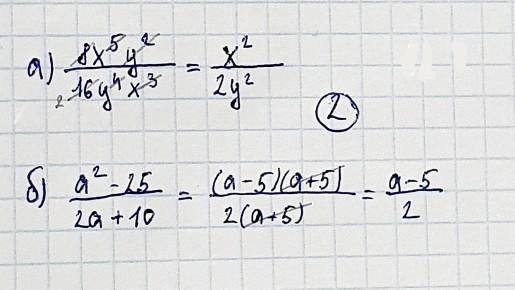 а) 8x⁵y²/16y⁴x³ = x²/2y²
2
②
б) a² - 25/2a + 10 = (a-5)(a+5)/2(a+5) = a-5/2